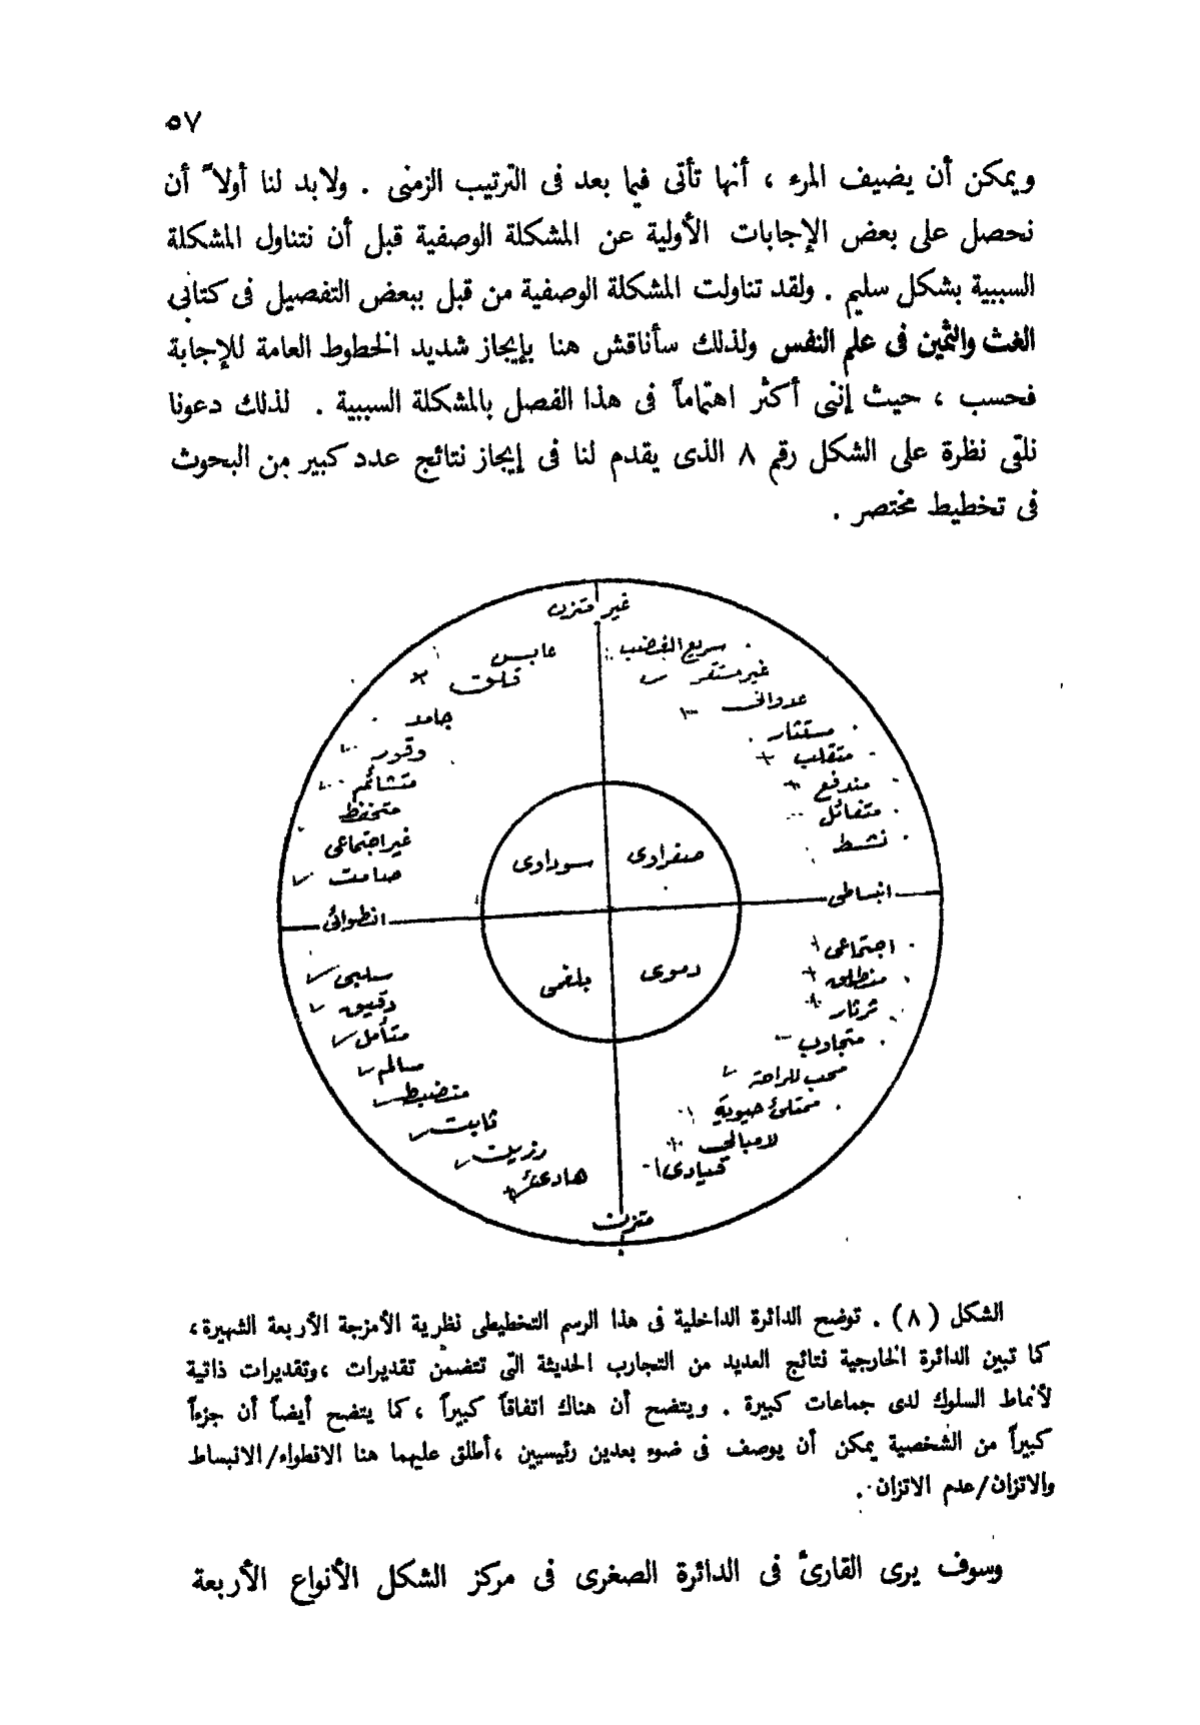 ٥٧
ويمكن أن يضيف المرء ، أنها تأتى فيما بعد فى الترتيب الزمنى . ولابد لنا أولاً أن
نحصل على بعض الإجابات الأولية عن المشكلة الوصفية قبل أن نتناول المشكلة
السببية بشكل سليم . ولقد تناولت المشكلة الوصفية من قبل ببعض التفصيل فى كتابى
الغث والثمين فى علم النفس ولذلك سأناقش هنا بإيجاز شديد الخطوط العامة للإجابة
فحسب ، حيث إننى أكثر اهتماماً فى هذا الفصل بالمشكلة السببية . لذلك دعونا
نلقى نظرة على الشكل رقم ٨ الذى يقدم لنا فى إيجاز نتائج عدد كبير من البحوث
فى تخطيط مختصر .
غير متزن
سريع الغضب
غير مستقر
عدوانى
مستثار
متقلب
مندفع
متفائل
نشط
عابس
قلق
جامد
وقور
متشائم
متحفظ
غير اجتماعى
صامت
صفراوى
سوداوى
انبساطى
انطوائى
دموى
بلغمى
اجتماعى
منطلق
ثرثار
متجاوب
محب للراحة
ممتلئ حيوية
لا مبالى
قيادى
سلبى
دقيق
متأمل
مسالم
منضبط
ثابت
رزين
هادئ
متزن
الشكل ( ٨ ) . توضح الدائرة الداخلية فى هذا الرسم التخطيطى نظرية الأمزجة الأربعة الشهيرة ،
كما تبين الدائرة الخارجية نتائج العديد من التجارب الحديثة التى تتضمن تقديرات ، وتقديرات ذاتية
لأنماط السلوك لدى جماعات كبيرة . ويتضح أن هناك اتفاقاً كبيراً ، كما يتضح أيضاً أن جزءاً
كبيراً من الشخصية يمكن أن يوصف فى ضوء بعدين رئيسيين ، أطلق عليهما هنا الانطواء/الانبساط
والاتزان/عدم الاتزان .
وسوف يرى القارئ فى الدائرة الصغرى فى مركز الشكل الأنواع الأربعة